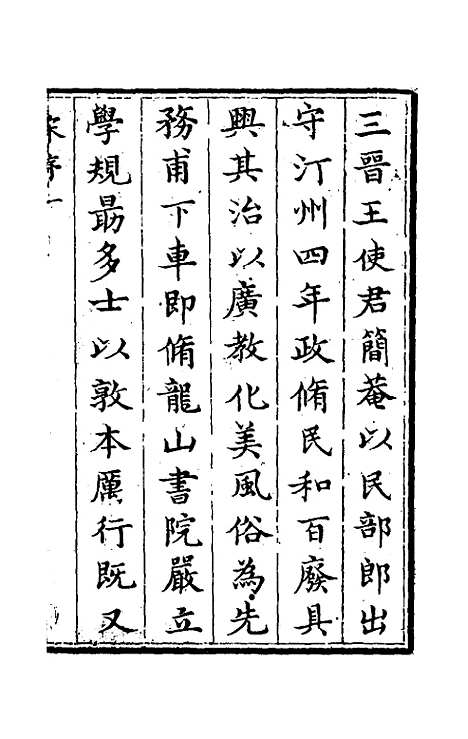 三晉王使君簡菴以民部郎出
守汀州四年政脩民和百廢具
興其治以廣教化美風俗為先
務甫下車即脩龍山書院嚴立
學規勗多士以敦本厲行既又